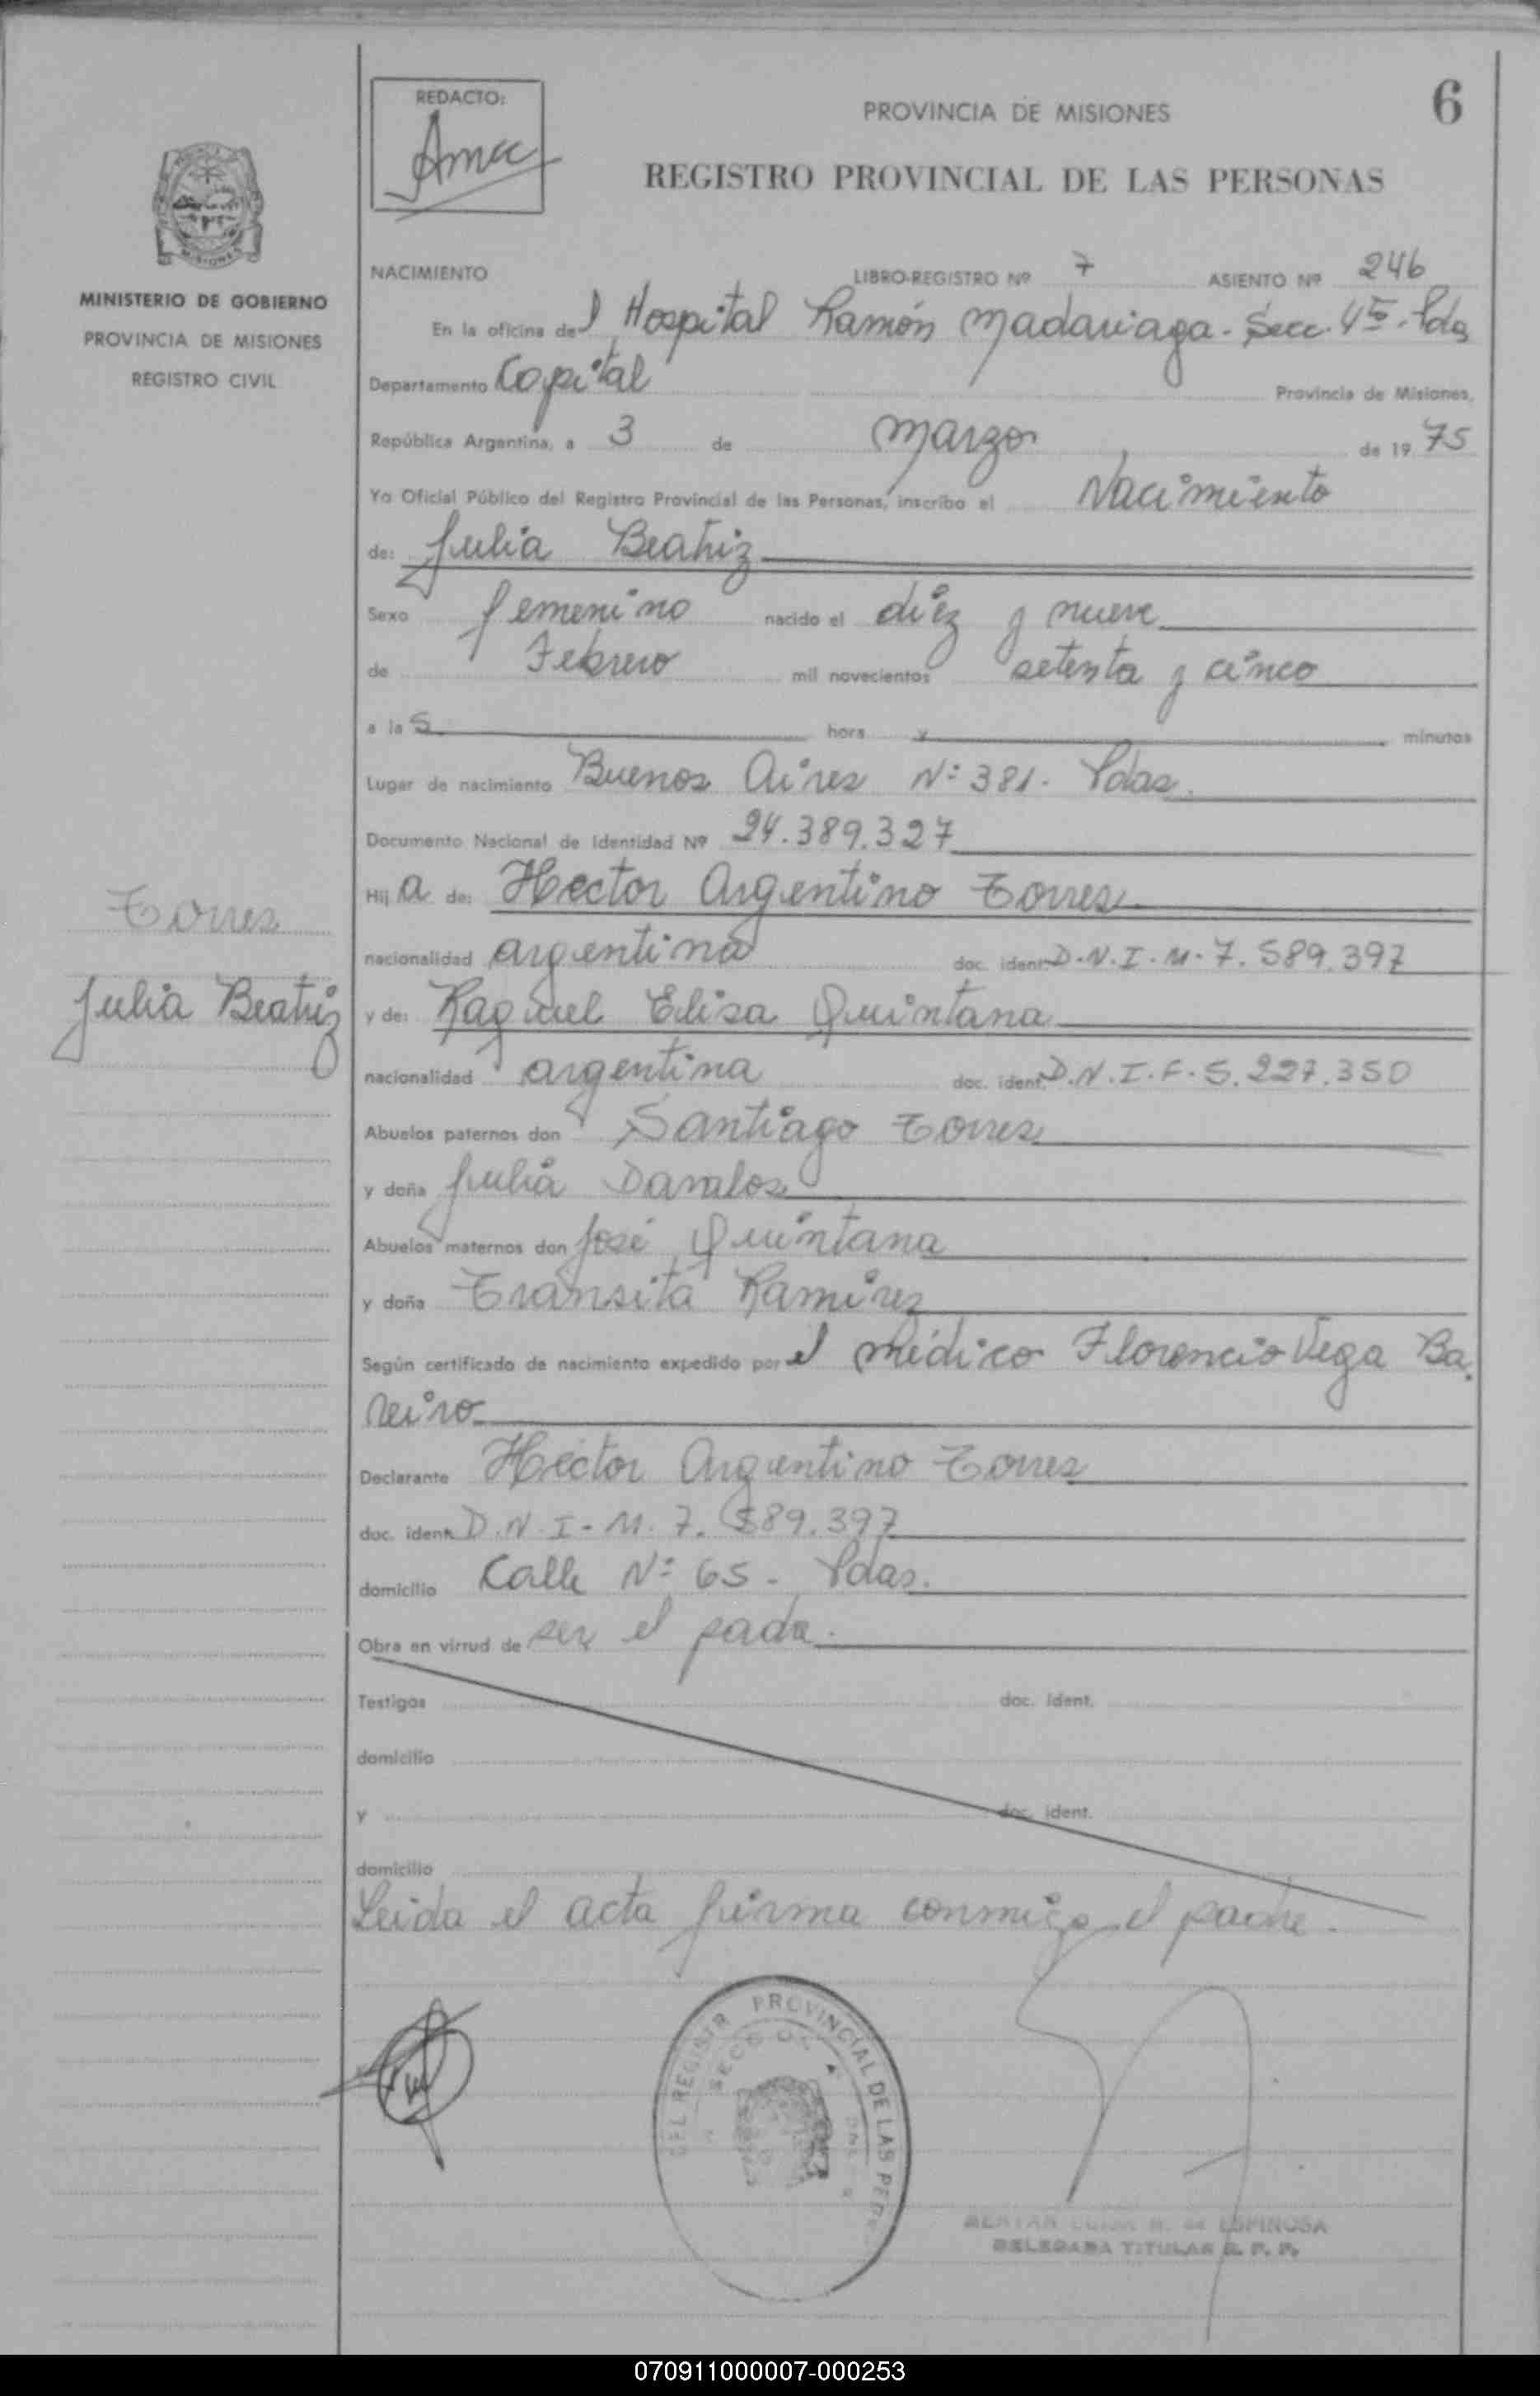 REDACTO:
PROVINCIA DE MISIONES
6
REGISTRO PROVINCIAL DE LAS PERSONAS
MISIONES
MINISTERIO DE GOBIERNO
PROVINCIA DE MISIONES
REGISTRO CIVIL
NACIMIENTO LIBRO-REGISTRO Nº 7 ASIENTO Nº 246
En la oficina del Hospital Ramón Madariaga - Secc. 4ª - Pdas
Departamento Capital Provincia de Misiones,
República Argentina, a 3 de marzo de 1975
Yo Oficial Público del Registro Provincial de las Personas, inscribo el Nacimiento
de: Julia Beatriz
Sexo femenino nacido el diez y nueve
de Febrero mil novecientos setenta y cinco
a las hora y minutos
Lugar de nacimiento Buenos Aires Nº 381 - Pdas.
Documento Nacional de Identidad Nº 24.389.327
Hija de: Hector Argentino Torres
nacionalidad argentina doc. ident. D.N.I.M. 7.589.397
y de: Raquel Elisa Quintana
nacionalidad argentina doc. ident. D.N.I.F. 5.227.350
Abuelos paternos don Santiago Torres
y doña Julia Davalos
Abuelos maternos don José Quintana
y doña Transita Ramirez
Según certificado de nacimiento expedido por el médico Florencio Vega Ba.
reiro
Declarante Hector Argentino Torres
doc. ident. D.N.I-M. 7.589.397
domicilio Calle Nº 65 - Pdas.
Obra en virrud de ser el padre.
Testigos doc. ident.
domicilio
y doc. ident.
domicilio
Leida el acta firma conmigo el padre.
Torres
Julia Beatriz
DEL REGISTR PROVINCIAL DE LAS PERS
SECC
ESPINOSA
DELEGADA TITULAR R. P. P.
070911000007-000253